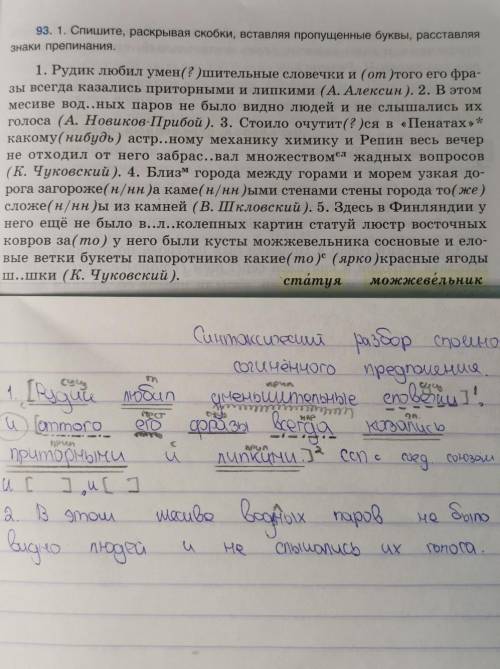 93. 1. Спишите, раскрывая скобки, вставляя пропущенные буквы, расставляя
знаки препинания.
1. Рудик любил умен(?)шительные словечки и (от)того его фра-
зы всегда казались приторными и липкими (А. Алексин). 2. В этом
месиве вод..ных паров не было видно людей и не слышались их
голоса (А. Новиков-Прибой). 3. Стоило очутит(?)ся в «Пенатах»*
какому(нибудь) астр..ному механику химику и Репин весь вечер
не отходил от него забрас..вал множествомсл жадных вопросов
(К. Чуковский). 4. Близм города между горами и морем узкая до-
рога загороже(н/нн)а каме(н/нн)ыми стенами стены города то(же)
сложе(н/нн)ы из камней (В. Шкловский). 5. Здесь в Финляндии у
него ещё не было в..л..колепных картин статуй люстр восточных
ковров за(то) у него были кусты можжевельника сосновые и ело-
вые ветки букеты папоротников какие(то)с (ярко)красные ягоды
ш..шки (К. Чуковский).
стáтуя можжевéльник
Синтаксический разбор сложно
сочинённого предложения.
сущ гл прил сущ
1. [Рудик любил уменьшительные словечки]1,
мест сущ нар гл
и [оттого его фразы всегда казались
прил с прил
приторными и липкими.]2 ССП с соед союзом
и [ ], и [ ]
2. В этом месиве водных паров не было
видно людей и не слышались их голоса.